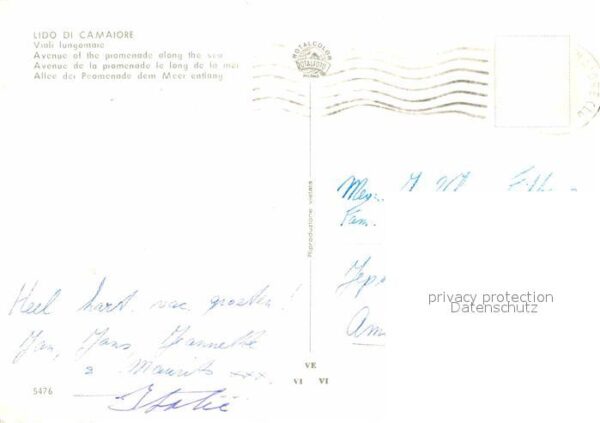 LIDO DI CAMAIORE
Viali lungomare
Avenue of the promenade along the sea
Avenue de la promenade le long de la mer
Allee der Promenade dem Meer entlang
ROTALCOLOR
ROTALFOTO
MILANO
Riproduzione vietata
Fam.
privacy protection
Datenschutz
Heel hart. vac. groeten!
Jan, Jans, Jeannette
& Maurits xxx.
Italië
5476
VE
VI VI